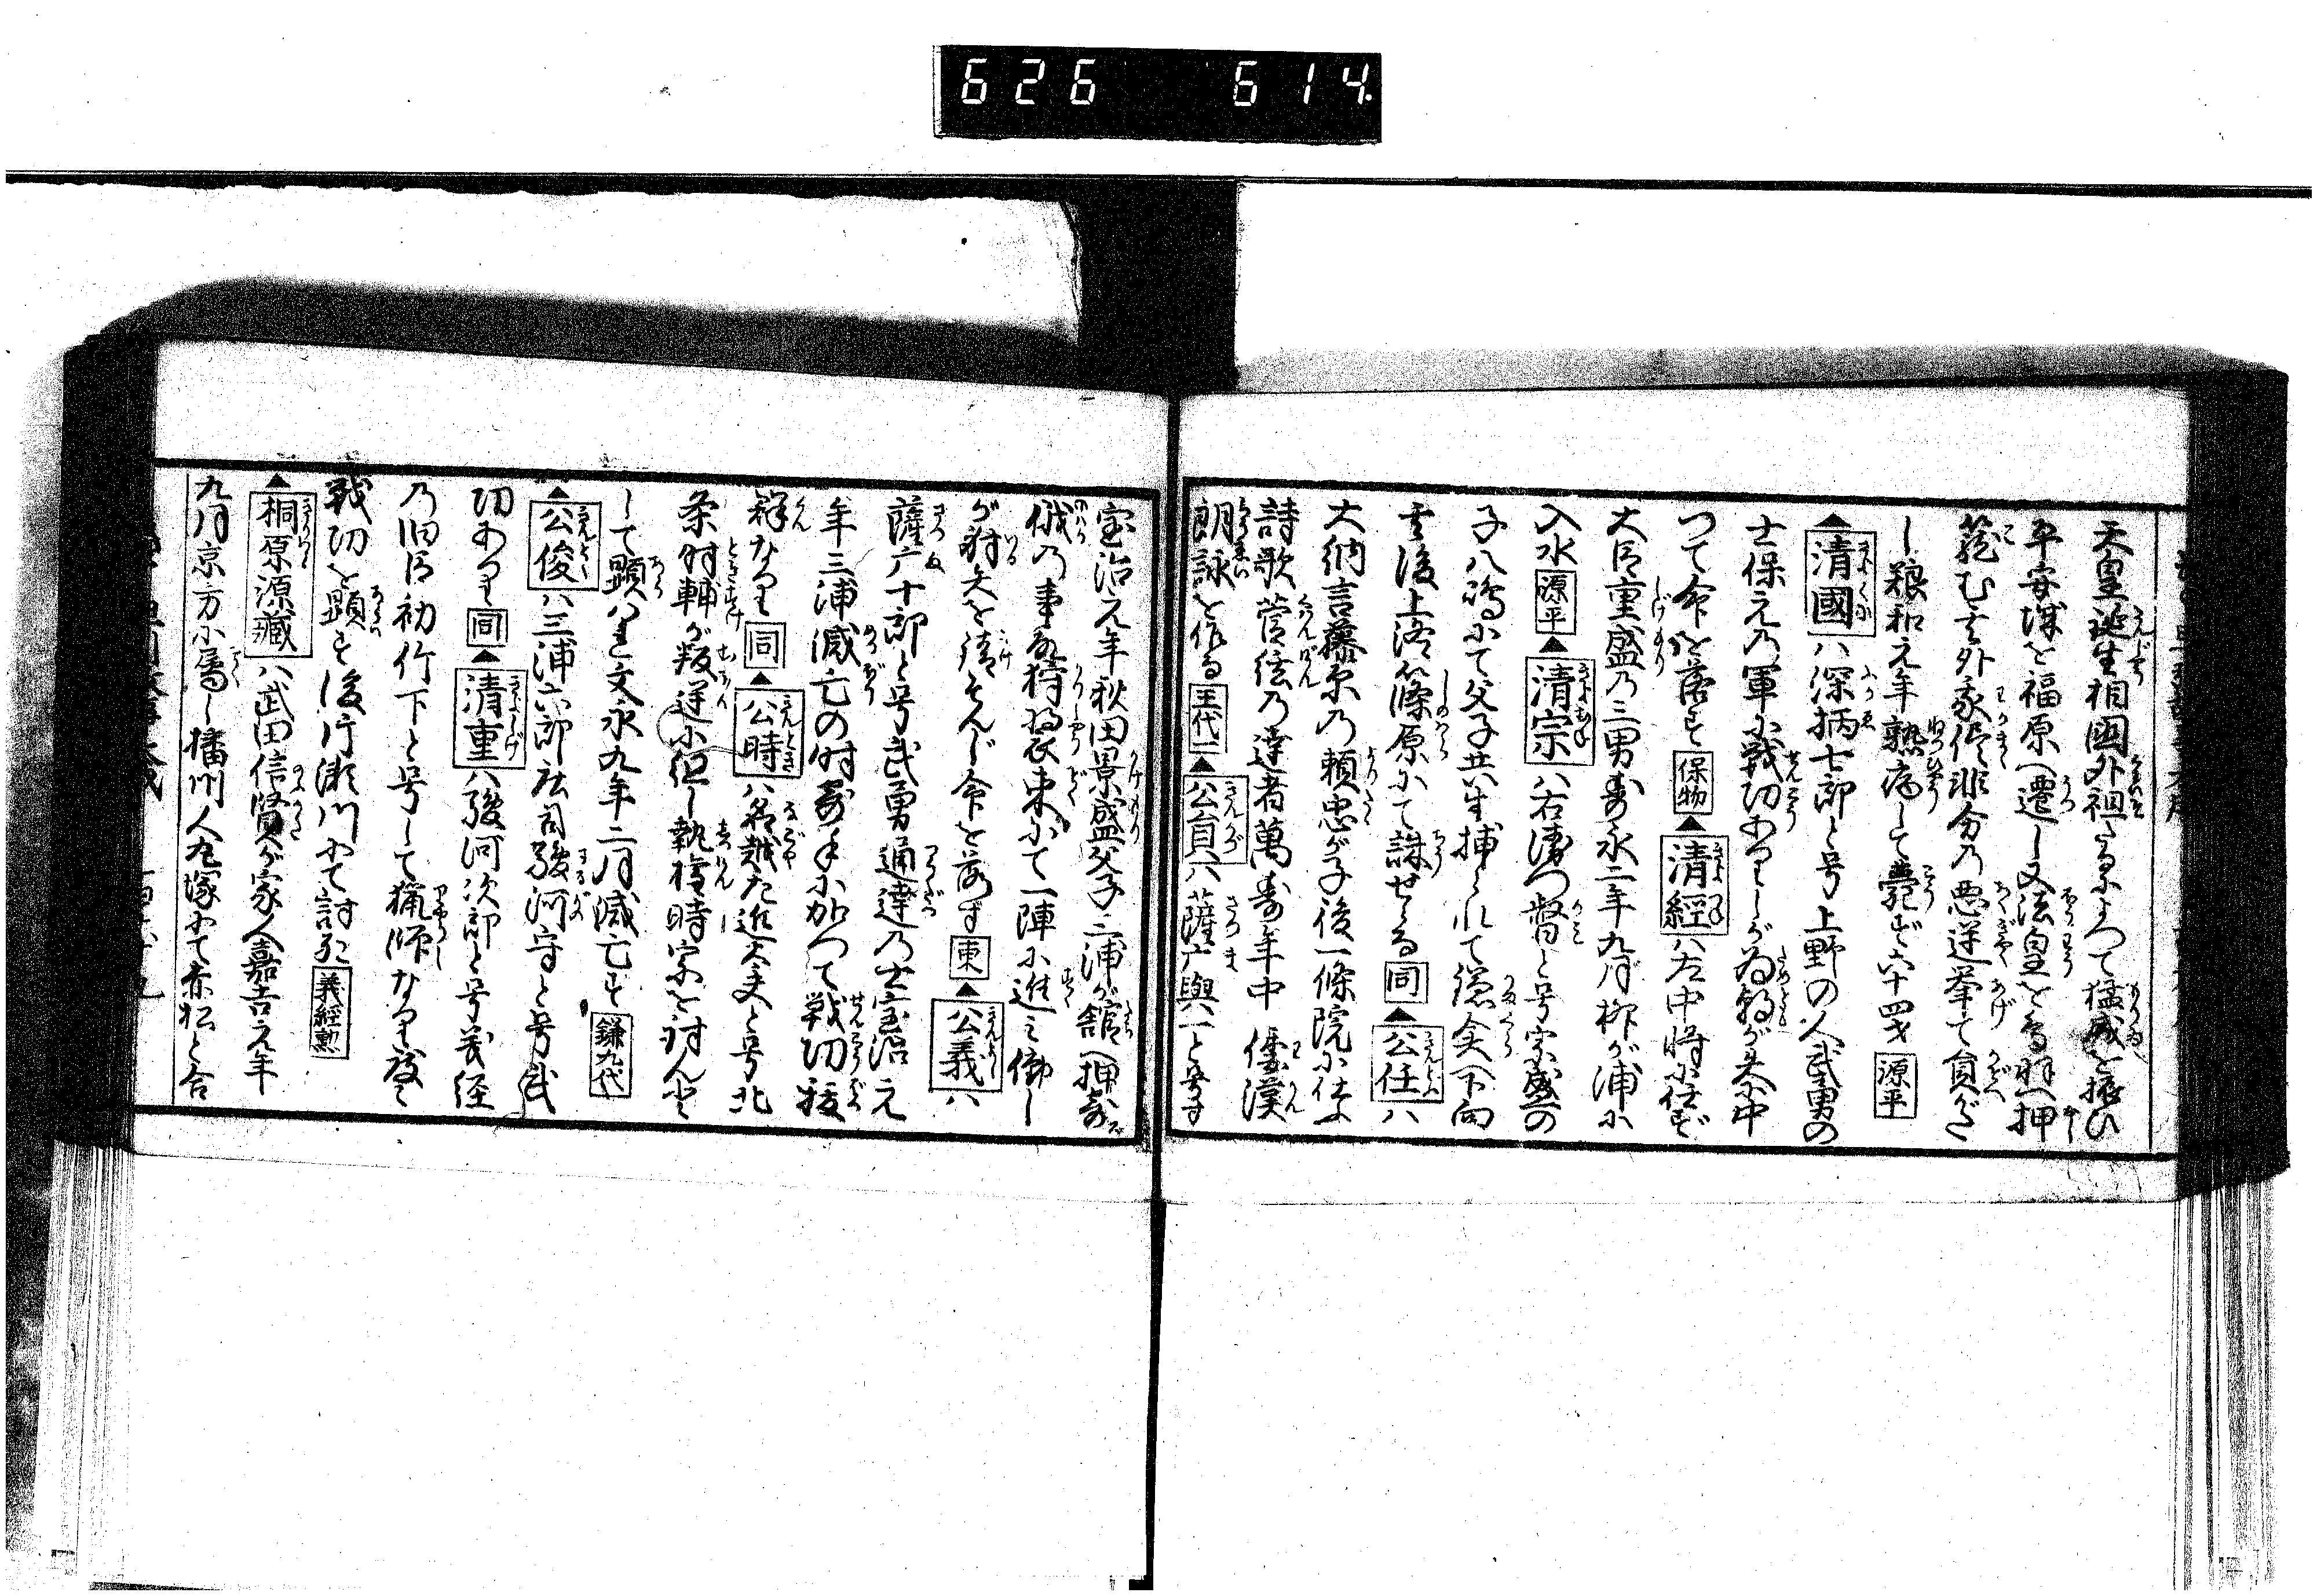 626 614
天皇誕生相國外祖たるによつて猛威を振ひ
平安城を福原へ遷し又法皇を鳥羽へ押
籠む其外我侭非分の悪逆挙て員へが
し養和元年熱病して薨ず六十四才 源平
▲清國ハ深栖七郎と号上野の人武勇の
士保元の軍に戦功ありしが為朝が矢に中
つて命を落す 保物 ▲清經ハ左中将に任ず
大臣重盛の三男寿永二年九月柳が浦に
入水 源平 ▲清宗ハ右衛門督と号宗盛の
子八嶋にて父子共生捕られて鎌倉へ下向
其後上洛篠原にて誅せらる 同 ▲公任ハ
大納言藤原の頼忠が子後一條院に仕ふ
詩歌管弦の達者萬寿年中倭漢
朗詠を作る 王代一 ▲公員ハ薩广與一と号す
宝治元年秋田景盛父子三浦が舘へ押寄
俄の事故狩装束にて一陣に進み働し
が射矢を請そんじ命を落す 東 ▲公義ハ
薩广十郎と号武勇通達の士宝治元
年三浦滅亡の時寄手に加つて戦功抜
群なり 同 ▲公時ハ名越左近大夫と号北
条時輔が叛逆に組し執権時宗を討んと
して顕はれ文永九年二月滅亡す 鎌九代
▲公俊ハ三浦六郎庄司駿河守と号武
功あり 同 ▲清重ハ駿河次郎と号義経
の旧臣初竹下と号して猟師なり度々
戦功を顕す後片瀬川にて討死 義經勲
▲桐原源藏ハ武田信賢が家人嘉吉元年
九月京方に属し播州人丸塚にて赤松と合